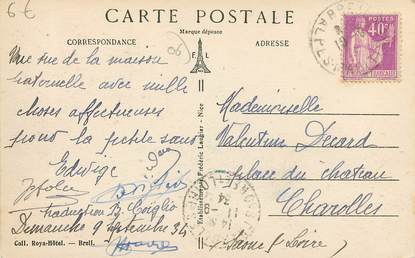 6€
CARTE POSTALE
Marque déposée
CORRESPONDANCE
ADRESSE
POSTES
40c
Une vue de la maison
paternelle avec mille
choses affectueuses
pour la petite sans
Edwige
Traduction B.
Dimanche 9 septembre 34
Coll. Roya-Hôtel. - Breil.
Etablissements Frédéric Laugier - Nice
Mademoiselle
Valentine Decard
place du chateau
Charolles
Saone & Loire